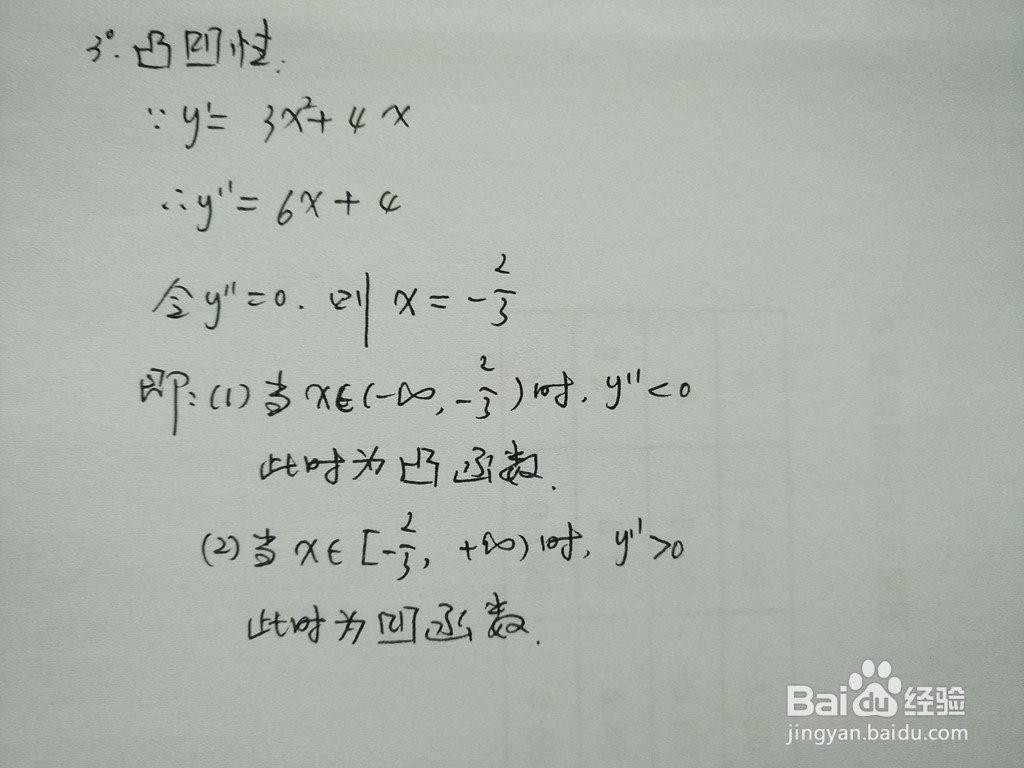 3°. 凸凹性.
∵ y'= 3x²+ 4x
∴ y''= 6x + 4
令 y''=0. 则 x = -2/3
即: (1) 当 x∈(-∞, -2/3) 时, y''<0
此时为凸函数.
(2) 当 x∈ [-2/3, +∞) 时, y''>0
此时为凹函数.
Baidu经验
jingyan.baidu.com